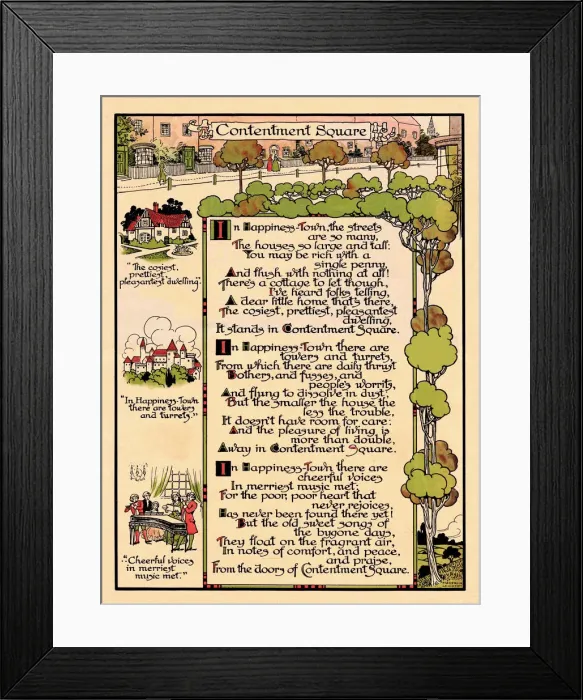 Contentment Square
In Happiness-Town, the streets
are so many,
The houses so large and tall:
You may be rich with a
single penny,
And flush with nothing at all!
There's a cottage to let though,
I've heard folks telling,
A dear little home that's there,
The cosiest, prettiest, pleasantest
dwelling,
It stands in Contentment Square.
In Happiness-Town there are
towers and turrets,
From which there are daily thrust
Bothers, and fusses, and
people's worrits,
And flung to dissolve in dust;
But the smaller the house the
less the trouble,
It doesn't have room for care:
And the pleasure of living is
more than double,
Away in Contentment Square.
In Happiness-Town there are
cheerful voices
In merriest music met;
For the poor, poor heart that
never rejoices,
Has never been found there yet!
But the old sweet songs of
the bygone days,
They float on the fragrant air,
In notes of comfort, and peace,
and praise,
From the doors of Contentment Square.
"The cosiest,
prettiest,
pleasantest dwelling".
"In Happiness-Town
there are towers
and turrets."
"Cheerful voices
in merriest
music met."